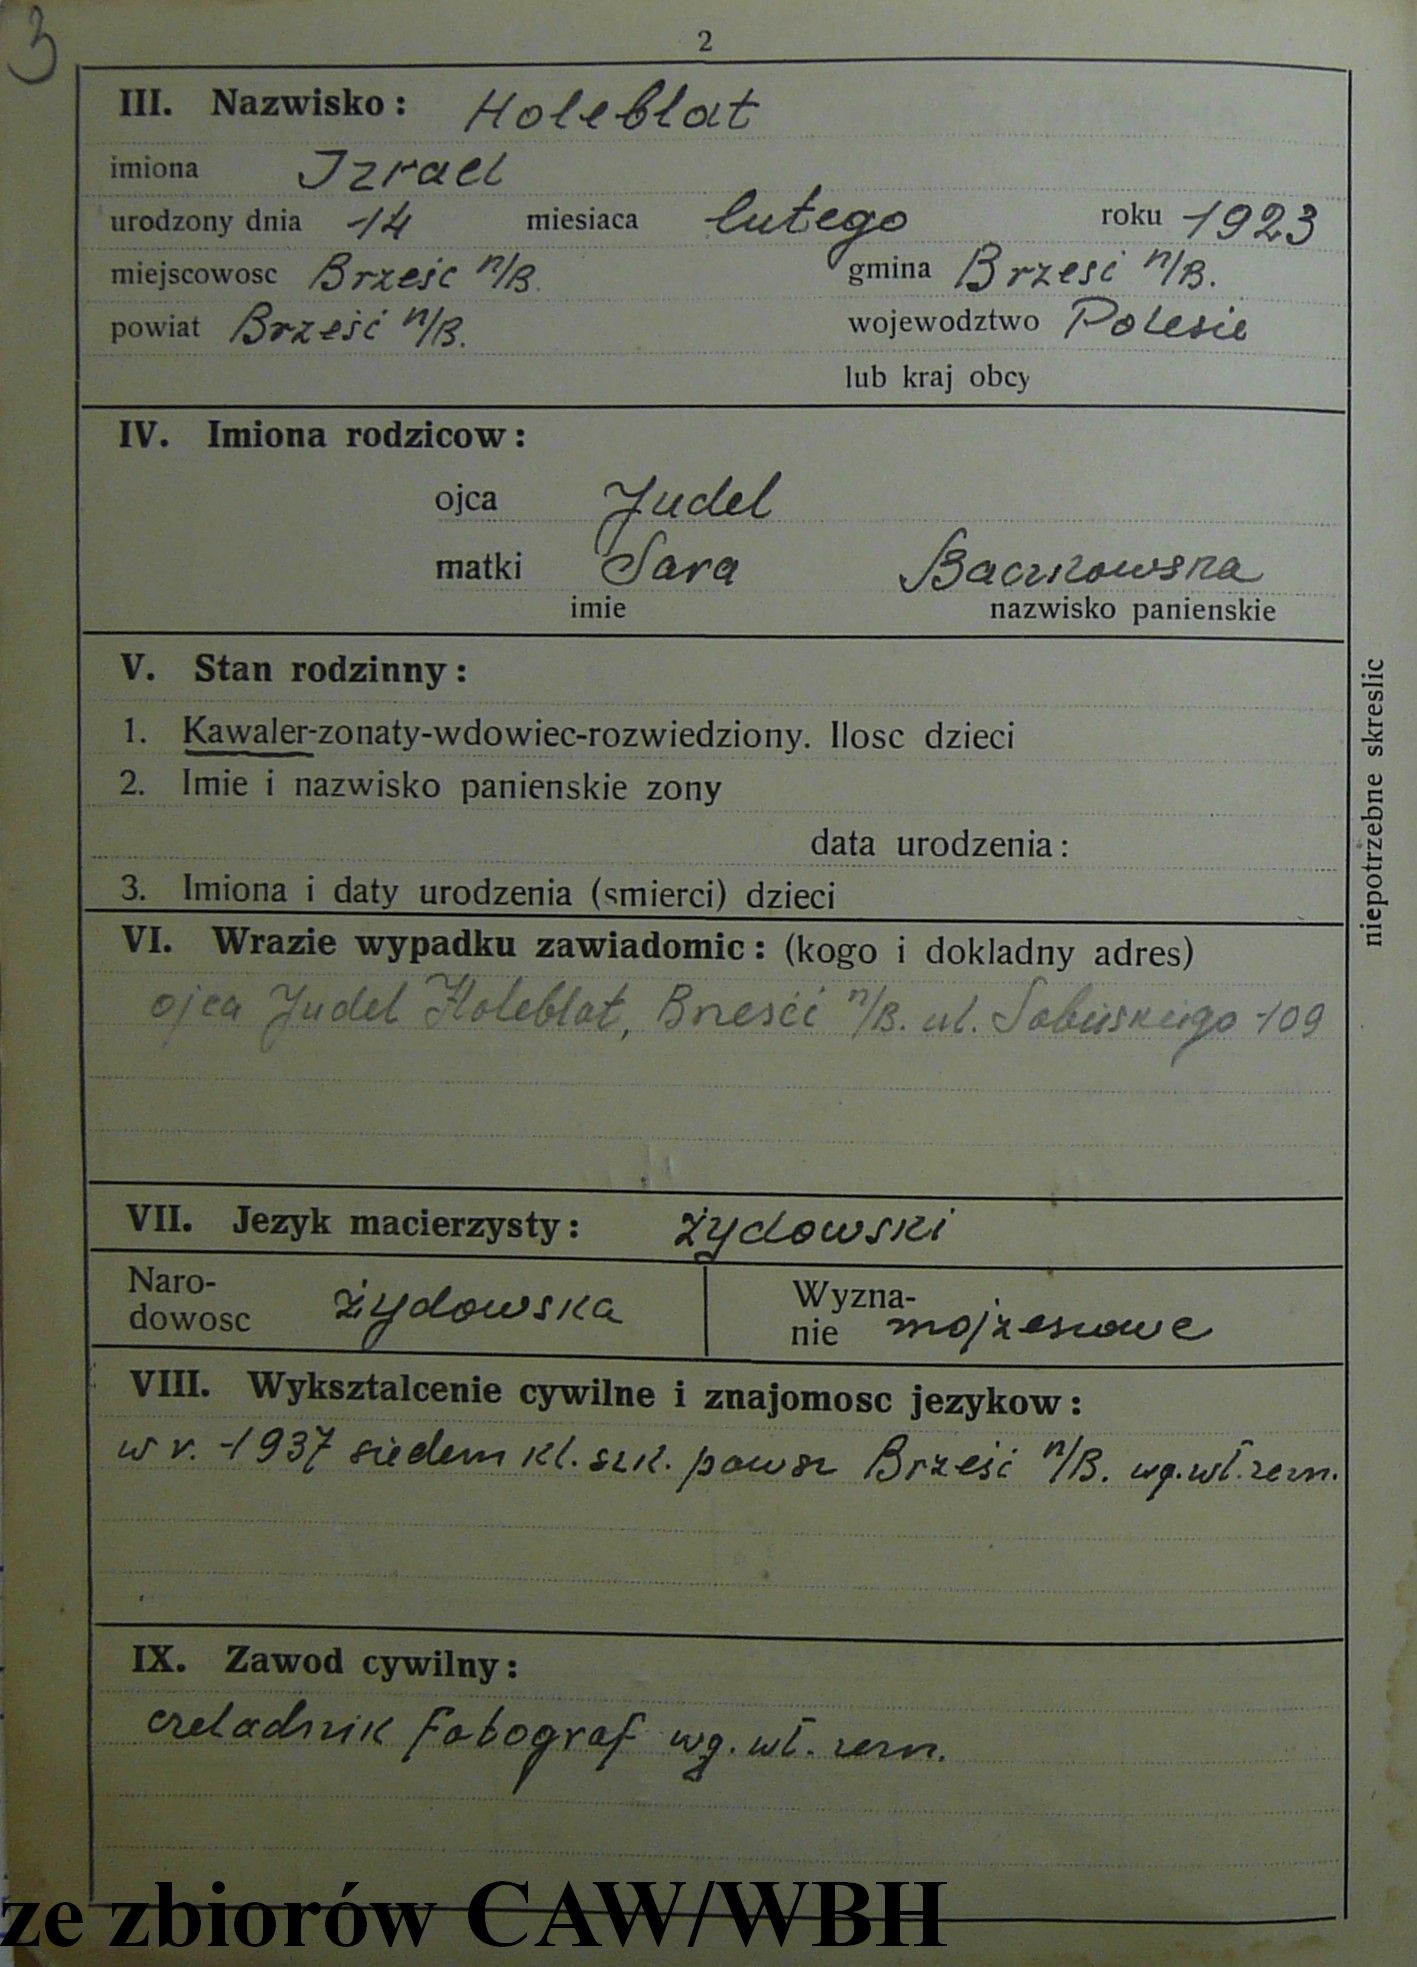 3
2
III. Nazwisko: Holeblat
imiona Izrael
urodzony dnia 14 miesiaca lutego roku 1923
miejscowosc Brześc n/B. gmina Brzesć n/B.
powiat Brześć n/B. wojewodztwo Polesie
lub kraj obcy
IV. Imiona rodzicow:
ojca Judel
matki Sara Baczkowska
imie nazwisko panienskie
V. Stan rodzinny:
1. Kawaler-zonaty-wdowiec-rozwiedziony. Ilosc dzieci
2. Imie i nazwisko panienskie zony
data urodzenia:
3. Imiona i daty urodzenia (smierci) dzieci
niepotrzebne skreslic
VI. Wrazie wypadku zawiadomic: (kogo i dokladny adres)
ojca Judel Holeblat, Brześć n/B. ul. Sobieskiego 109
VII. Jezyk macierzysty: żydowski
Naro-
dowosc żydowska
Wyzna-
nie mojżeszowe
VIII. Wyksztalcenie cywilne i znajomosc jezykow:
w r. 1937 siedem kl. szk. powsz Brześć n/B. wg. wł. zezn.
IX. Zawod cywilny:
czeladnik fotograf wg. wł. zezn.
ze zbiorów CAW/WBH